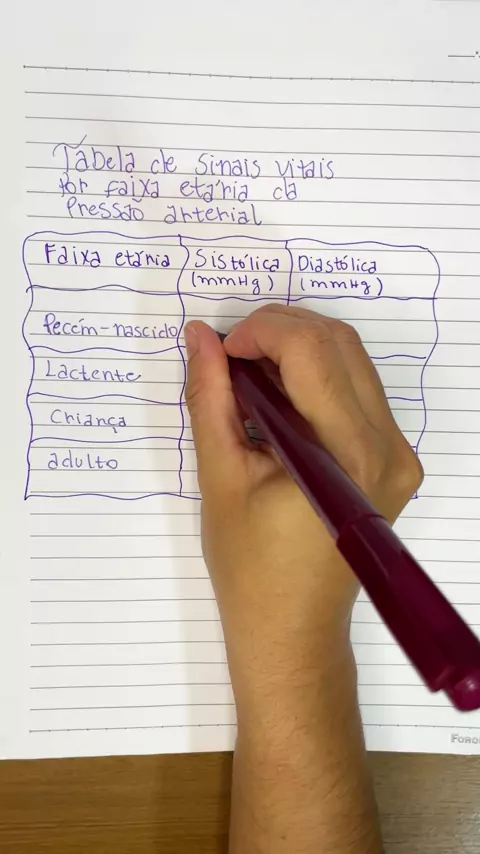 Tabela de Sinais vitais
por faixa etária da
Pressão arterial
Faixa etária Sistólica (mmHg) Diastólica (mmHg)
Recém-nascido
Lactente
Criança
adulto